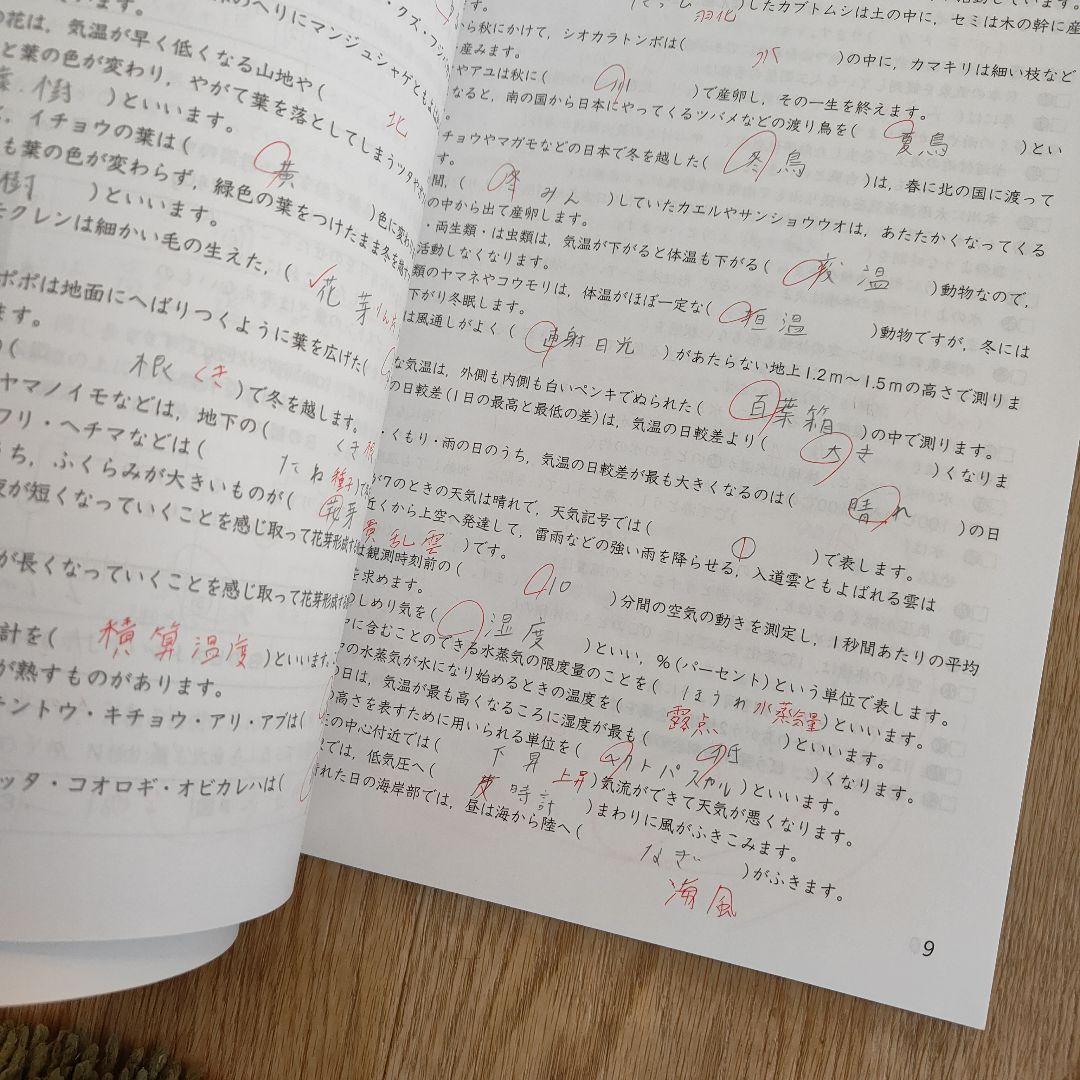 のへりにマンジュシャゲ
クズ・フジ
の花は，気温が早く低くなる山地や(北
と葉の色が変わり，やがて葉を落としてしまうツタや
樹 )といいます。
イチョウの葉は(黄)色に変わ
も葉の色が変わらず，緑色の葉をつけたまま冬を
樹 )といいます。
モクレンは細かい毛の生えた，(花芽
ポポは地面にへばりつくように葉を広げた(
ます。
の(根 くき)で冬を越します。
ヤマノイモなどは，地下の(くき
フリ・ヘチマなどは(たね 種子)で
うち，ふくらみが大きいものが(花芽
夜が短くなっていくことを感じ取って花芽形成する
が長くなっていくことを感じ取って花芽形成する
計を(積算温度)といいます。
が熟すものがあります。
テントウ・キチョウ・アリ・アブは(
ッタ・コオロギ・オビカレハは(
羽化)したカブトムシは土の中に，セミは木の幹に産
から秋にかけて，シオカラトンボは(水)の中に，カマキリは細い枝など
産みます。
やアユは秋に(川)で産卵し，その一生を終えます。
なると，南の国から日本にやってくるツバメなどの渡り鳥を(夏鳥)とい
チョウやマガモなどの日本で冬を越した(冬鳥)は，春に北の国に渡って
す。
間，(冬みん)していたカエルやサンショウウオは，あたたかくなってくる
の中から出て産卵します。
・両生類・は虫類は，気温が下がると体温も下がる(変温)動物なので，
活動しなくなります。
類のヤマネやコウモリは，体温がほぼ一定な(恒温)動物ですが，冬には
下がり冬眠します。
は風通しがよく(直射日光)があたらない地上1.2m〜1.5mの高さで測りま
な気温は，外側も内側も白いペンキでぬられた(百葉箱)の中で測ります。
の日較差(1日の最高と最低の差)は，気温の日較差より(大き)くなりま
・くもり・雨の日のうち，気温の日較差が最も大きくなるのは(晴れ)の日
が7のときの天気は晴れで，天気記号では(⦶)で表します。
近くから上空へ発達して，雷雨などの強い雨を降らせる，入道雲ともよばれる雲は
乱雲)です。
は観測時刻前の(10)分間の空気の動きを測定し，1秒間あたりの平均
を求めます。
のしめり気を(湿度)といい，%(パーセント)という単位で表します。
に含むことのできる水蒸気の限度量のことを(ほうわ水蒸気量)といいます。
の水蒸気が水になり始めるときの温度を(露点)といいます。
の日は，気温が最も高くなるころに湿度が最も(低)くなります。
高さを表すために用いられる単位を(クトパスカル)といいます。
の中心付近では(下昇 上昇)気流ができて天気が悪くなります。
では，低気圧へ(時計)まわりに風がふきこみます。
れた日の海岸部では，昼は海から陸へ(なぎ)がふきます。
海風
9